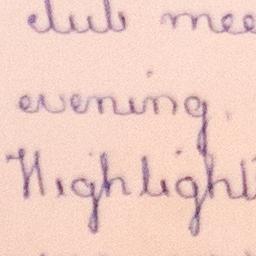 club mee
evening.
Highlight